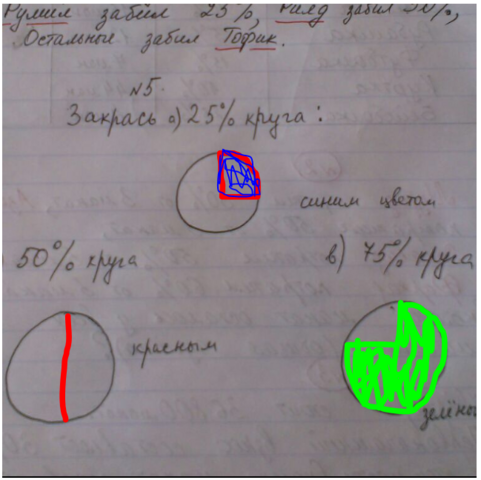 Рулим забил 25%, забил 50%,
Остальные забил Тофик.
№5.
Закрась а) 25% круга:
синим цветом
50% круга
в) 75% круга
красным
зелёны